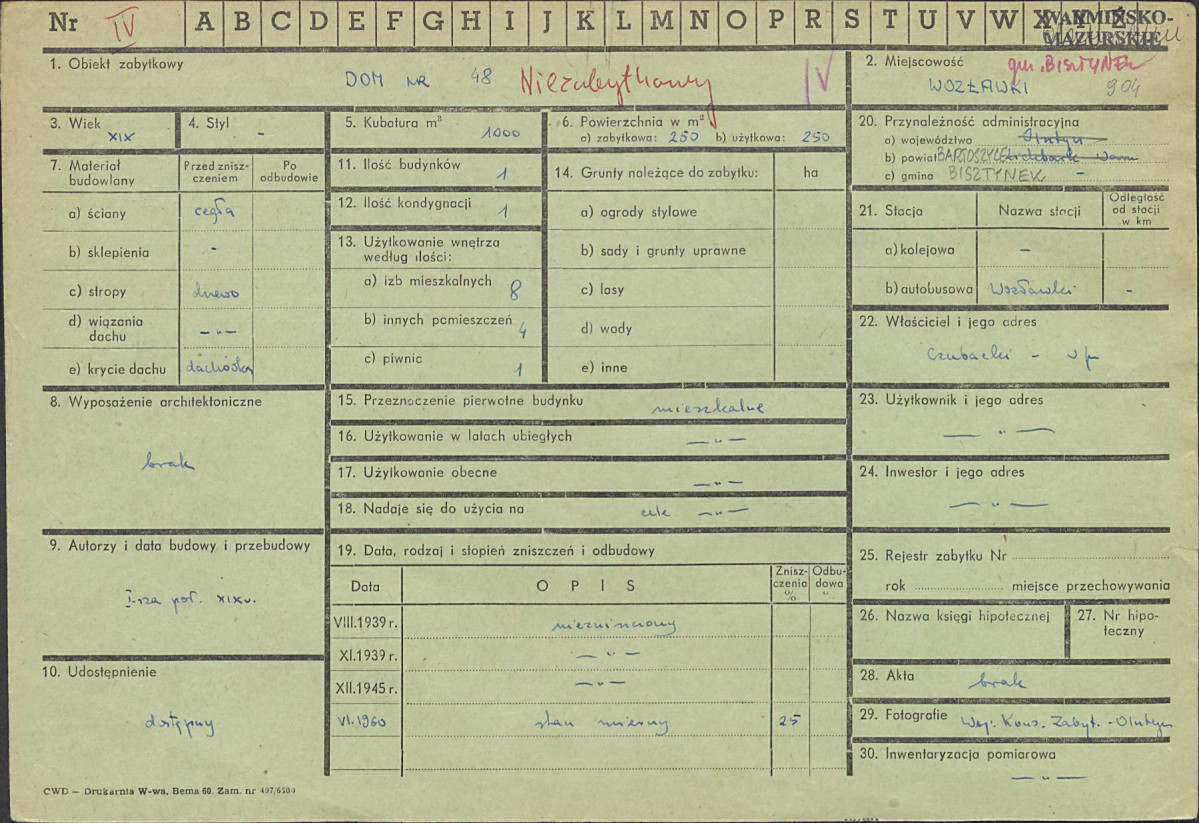 Nr IV A B C D E F G H I J K L M N O P R S T U V W X Y Z WARMIŃSKO-
MAZURSKIE
1. Obiekt zabytkowy
DOM NR 48 Niezabytkowy IV
2. Miejscowość gm. BISZTYNEK
WOZŁAWKI 904
3. Wiek
XIX
4. Styl
-
5. Kubatura m³
1000
6. Powierzchnia w m²
a) zabytkowa: 250 b) użytkowa: 250
20. Przynależność administracyjna
a) województwo Olsztyn
b) powiat BARTOSZYCE
c) gmina BISZTYNEK -
7. Materiał budowlany
Przed zniszczeniem
Po odbudowie
a) ściany cegła
b) sklepienia -
c) stropy drewo
d) wiązania dachu — „ —
e) krycie dachu dachówka
11. Ilość budynków
1
12. Ilość kondygnacji
1
13. Użytkowanie wnętrza
według ilości:
a) izb mieszkalnych 8
b) innych pomieszczeń 4
c) piwnic 1
14. Grunty należące do zabytku: ha
a) ogrody stylowe
b) sady i grunty uprawne
c) lasy
d) wody
e) inne
21. Stacja Nazwa stacji Odległość od stacji w km
a) kolejowa -
b) autobusowa Wozławki -
22. Właściciel i jego adres
Czubacki -
8. Wyposażenie architektoniczne
brak
15. Przeznaczenie pierwotne budynku mieszkalne
16. Użytkowanie w latach ubiegłych — „ —
17. Użytkowanie obecne — „ —
18. Nadaje się do użycia na cele — „ —
23. Użytkownik i jego adres
— „ —
24. Inwestor i jego adres
— „ —
9. Autorzy i data budowy i przebudowy
I-sza poł. XIX w.
19. Data, rodzaj i stopień zniszczeń i odbudowy
Data OPIS Zniszczenia % Odbudowa %
VIII.1939 r. niezniszczony
XI.1939 r. — „ —
XII.1945 r. — „ —
VI.1960 stan mierny 25
25. Rejestr zabytku Nr
rok miejsce przechowywania
26. Nazwa księgi hipotecznej
27. Nr hipoteczny
10. Udostępnienie
dostępny
28. Akta
brak
29. Fotografie Woj. Kons. Zabyt. - Olsztyn
30. Inwentaryzacja pomiarowa
— „ —
CWD — Drukarnia W-wa, Bema 60. Zam. nr 497/6500